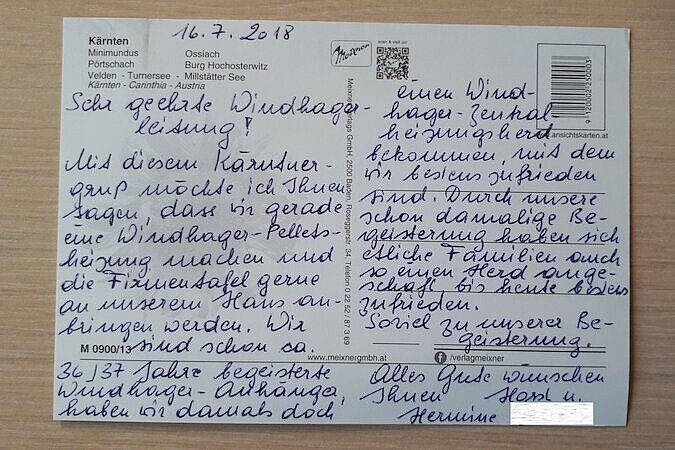 16.7.2018
Kärnten
Minimundus Ossiach
Pörtschach Burg Hochosterwitz
Velden - Turnersee - Millstätter See
Kärnten - Carinthia - Austria
Meixner
scan & visit us!
9120002250003
ansichtskarten.at
Sehr geehrte Windhager-
leitung!
Mit diesem Kärntner-
gruß möchte ich Ihnen
sagen, dass wir gerade
eine Windhager-Pellets-
heizung machen und
die Firmentafel gerne
an unserem Haus an-
bringen werden. Wir
M 0900/13 sind schon ca.
36/37 Jahre begeisterte
Windhager-Anhänger,
haben wir damals doch
Meixner Verlags GmbH, 2500 Baden, Roseggerstr. 34, Telefon 0 22 52 / 87 3 69
einen Wind-
hager-Zentral-
heizungsherd
bekommen, mit dem
wir bestens zufrieden
sind. Durch unsere
schon damalige Be-
geisterung haben sich
etliche Familien auch
so einen Herd ange-
schaft, bis heute bestens
zufrieden.
Soviel zu unserer Be-
geisterung.
www.meixnergmbh.at
/verlagmeixner
Alles Gute wünschen
Ihnen u.
Hermine